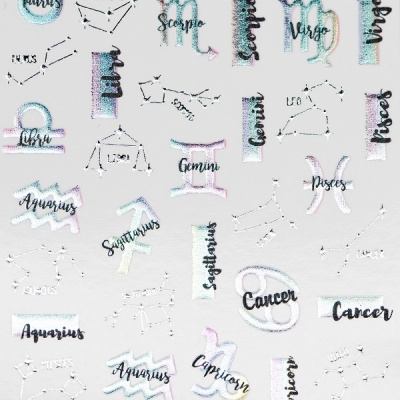 Taurus
Scorpio
Scorpio
Virgo
Virgo
Libra
LEO
Gemini
Pisces
Libra
LIBRA
Gemini
Pisces
Aquarius
Sagittarius
Sagittarius
Cancer
Cancer
Aquarius
Aquarius
Capricorn